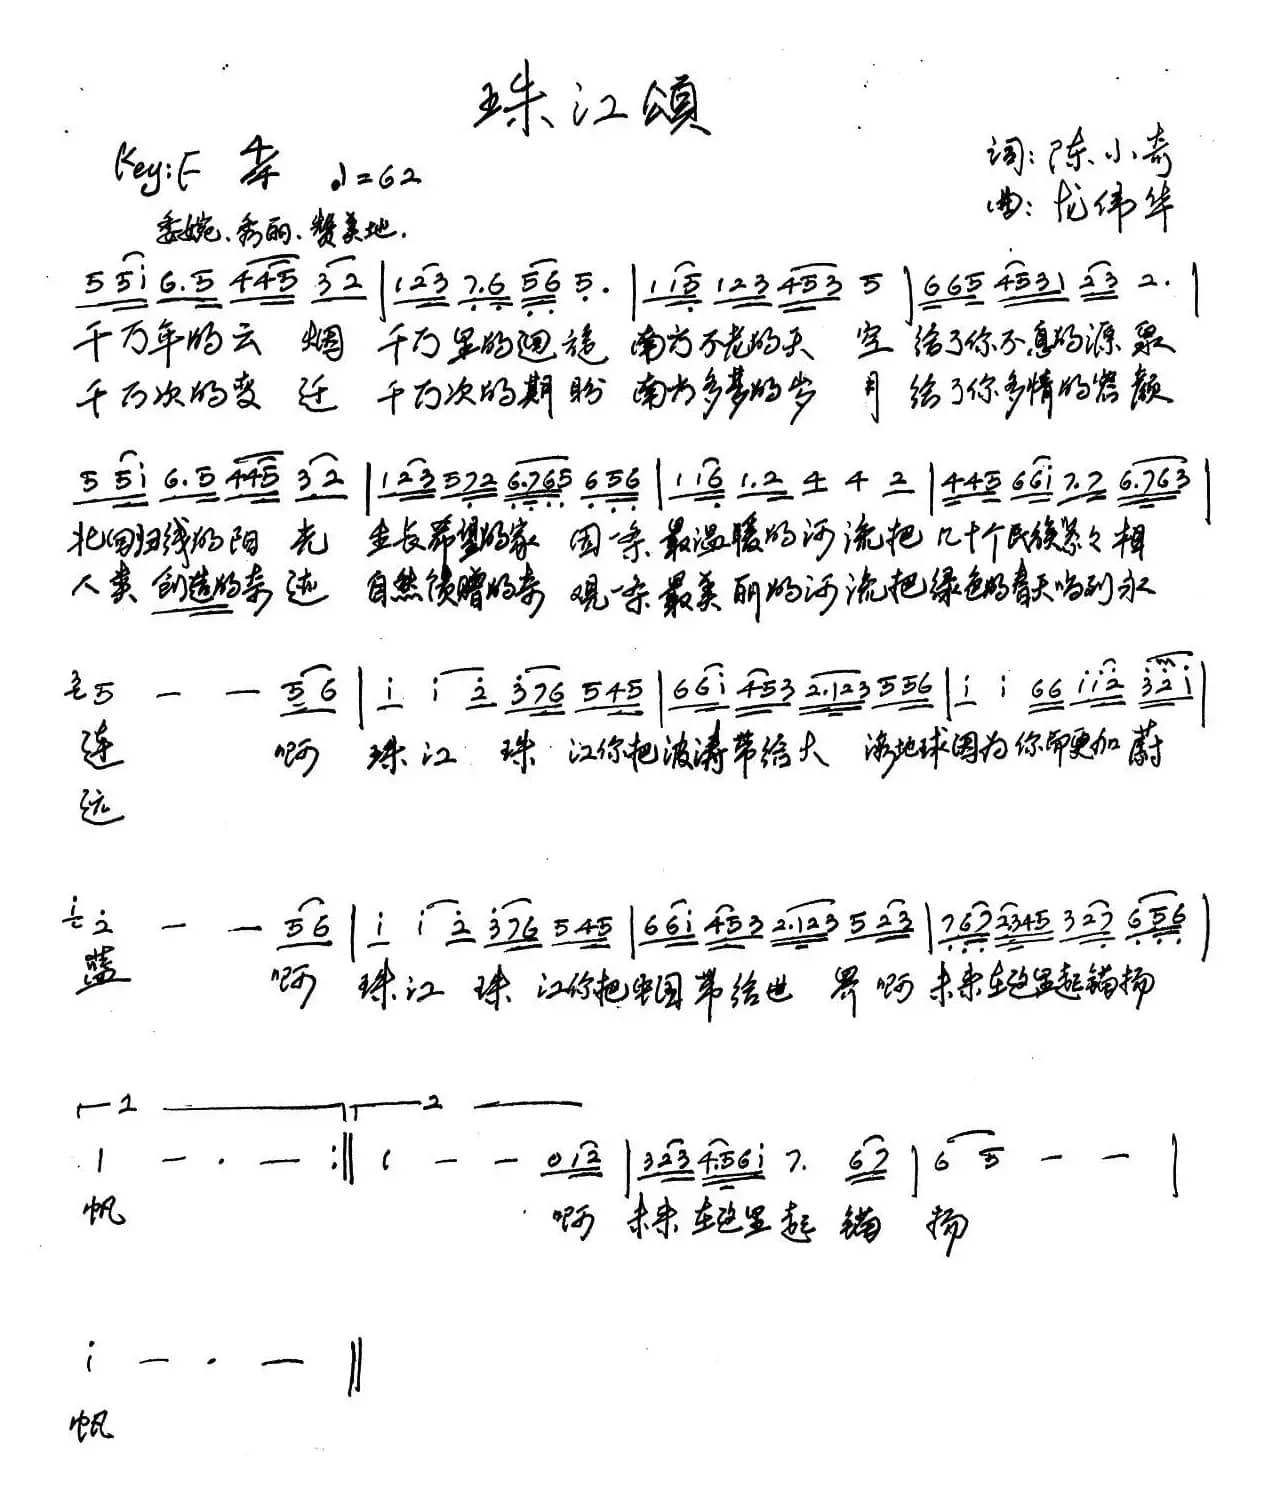 珠江頌
Key:F 4/4 ♩=62
词: 陈小奇
曲: 龙伟华
委婉、秀丽、赞美地.
5 5 i 6.5 4 4 5 3 2 | 1 2 3 7.6 5 6 5. | 1 1 5 1 2 3 4 5 3 5 | 6 6 5 4 5 3 1 2 3 2. |
千万年的云 烟 千万里的迴旋 南方不老的天 空 给了你不息的源泉
千万次的变 迁 千万次的期盼 南方多梦的岁 月 给了你多情的容颜
5 5 i 6.5 4 4 5 3 2 | 1 2 3 5 7 2 6.7 6 5 6 5 6 | 1 1 6 1.2 4 4 2 | 4 4 5 6 6 i 7.7 6.7 6 3 |
北回归线的阳 光 生长希望的家 园一条最温暖的河流把几十个民族紧々相
人类 創造的奇 迹 自然馈赠的奇 观一条最美丽的河流把绿色的春天唱到永
3 5 — — 5 6 | i i 2 3 7 6 5 4 5 | 6 6 i 4 5 3 2.1 2 3 5 5 6 | i i 6 6 i i 2 3 2 i |
连 啊 珠江 珠 江你把波涛带给大 海地球因为你而更加蔚
远
i 2 — — 5 6 | i i 2 3 7 6 5 4 5 | 6 6 i 4 5 3 2.1 2 3 5 2 3 | 7 6 7 2 3 4 5 3 2 7 6 5 6 |
蓝 啊 珠江 珠 江你把中国带给世 界啊 未来在这里起锚扬
1 2
1 — . — :‖ 1 — — 0 i 2 | 3 2 3 4.5 6 i 7. 6 7 | 6 5 — — |
帆 啊 未来在这里起 锚 扬
i — . — ‖
帆